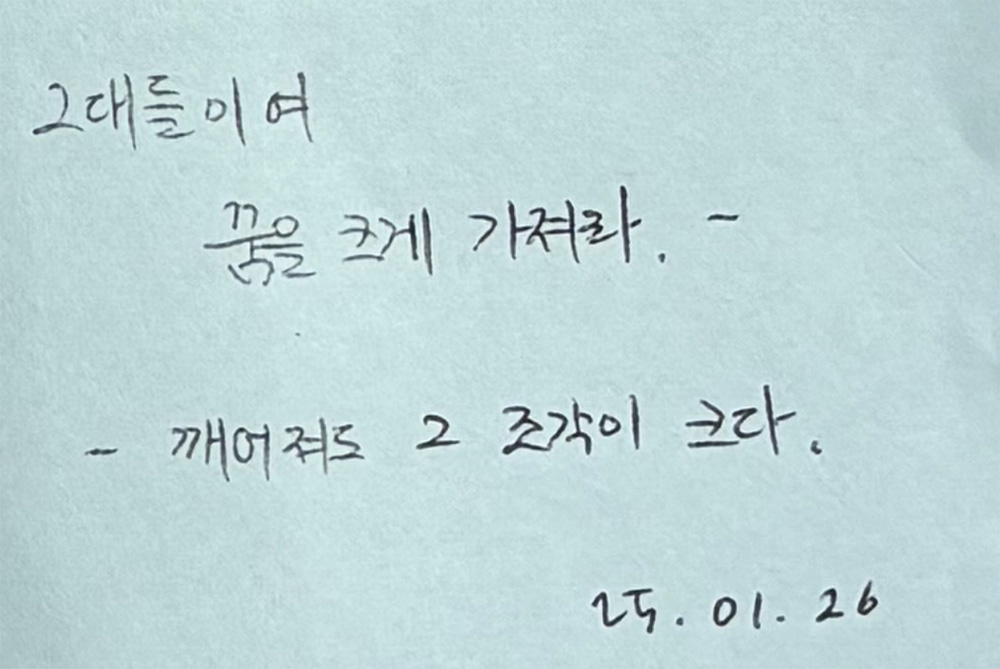 그대들이여
꿈을 크게 가져라. -
- 깨어져도 그 조각이 크다.
25. 01. 26